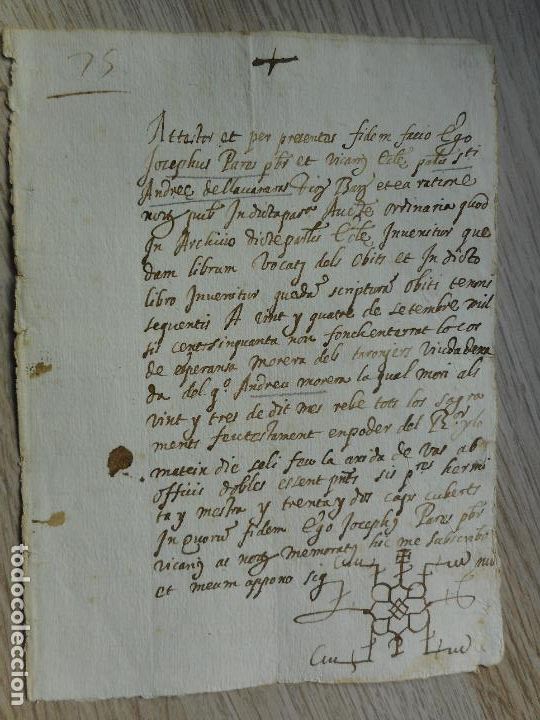 75
Attestor et per presentes fidem facio Ego
Josephus Pares pbr et vicari Ecle parlis sti
Andree de llavaneras Dios Barn et ea ratione
nors pub in dicta parra Aucte ordinaria quod
in Archivio dicte parlis Ecle Invenitur que
dam librum vocatj dels obits et In dicto
libro Invenitur queda scriptura obiti tenoris
sequentis A vint y quatre de setembre mil
sis cents sinquanta nou fonch enterrat lo cos
de esperansa morera dels taronjers viuda dexa
da del qo Andreu morera la qual mori als
vint y tres de dit mes rebe tots los sagra
ments feu testament en poder del Rr y lo
matein die sali feu la arida de vas ab
officis dobles essent pnts sis pres hermi
ta y mestra y trenta y dos caps cuberts
In quoru fidem Ego Josephj Pares pbr
vicarij as nors memoratj hic me subscribo
et meum appono sig
todocoleccion